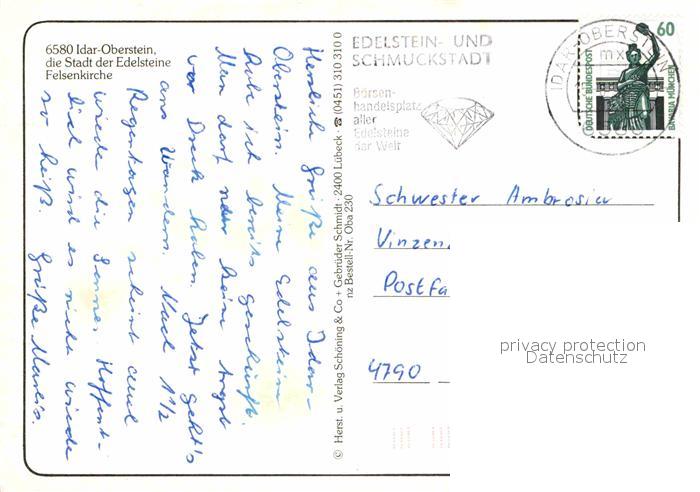 6580 Idar-Oberstein,
die Stadt der Edelsteine
Felsenkirche
Herzliche Grüße aus Idar-
Oberstein. Meine Edelsteine
habe ich bereits geschürft.
Man darf nur keine Angst
vor Dreck haben. Jetzt geht's
ans Wandern. Nach 1 1/2
Regentagen scheint auch
wieder die Sonne. Hoffent-
lich wird es nicht wieder
so heiß. Grüße Marlis.
© Herst. u. Verlag Schöning & Co + Gebrüder Schmidt · 2400 Lübeck · ☎ (0451) 310 310 0
nz Bestell-Nr. Oba 230
EDELSTEIN- UND
SCHMUCKSTADT
Börsen-
handelsplatz
aller
Edelsteine
der Welt
IDAR-OBERSTEIN
mx
60
DEUTSCHE BUNDESPOST
BAVARIA MÜNCHEN
Schwester Ambrosia
Vinzen
Postfa
4790
privacy protection
Datenschutz